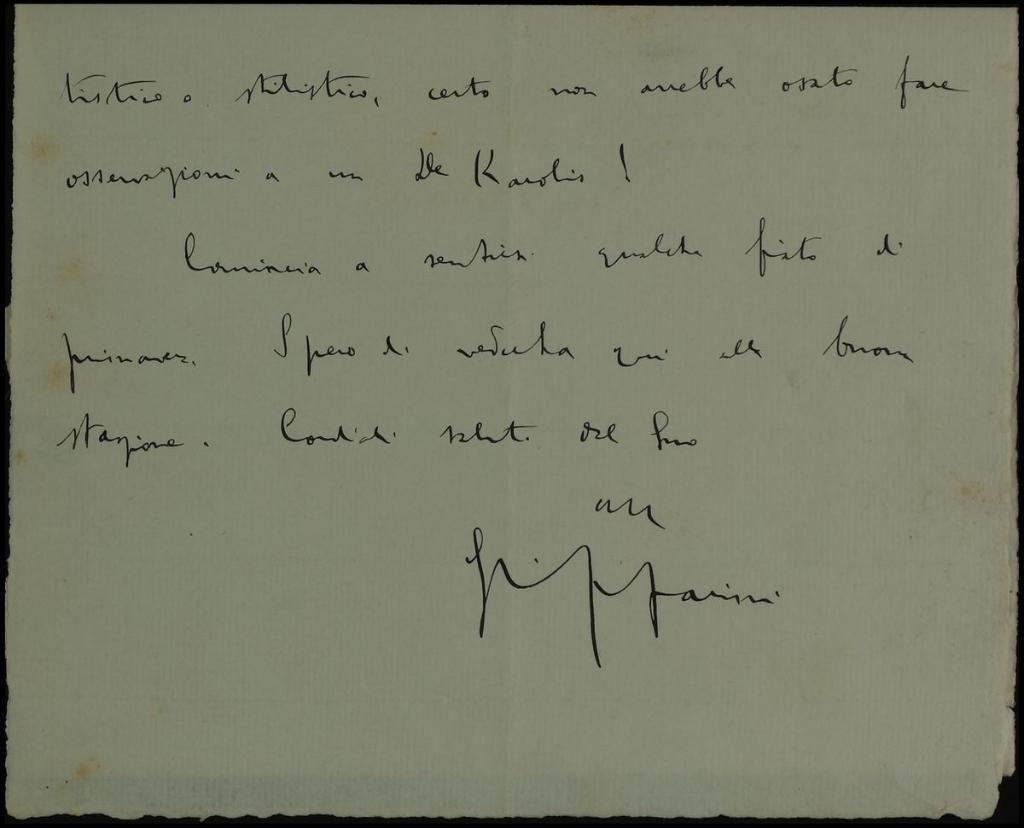 tistico o stilistico, certo non avrebbe osato fare
osservazioni a un De Karolis!
Comincia a sentirsi qualche fiato di
primavera. Spero di vederla qui alla buona
stagione. Cordiali saluti dal Suo